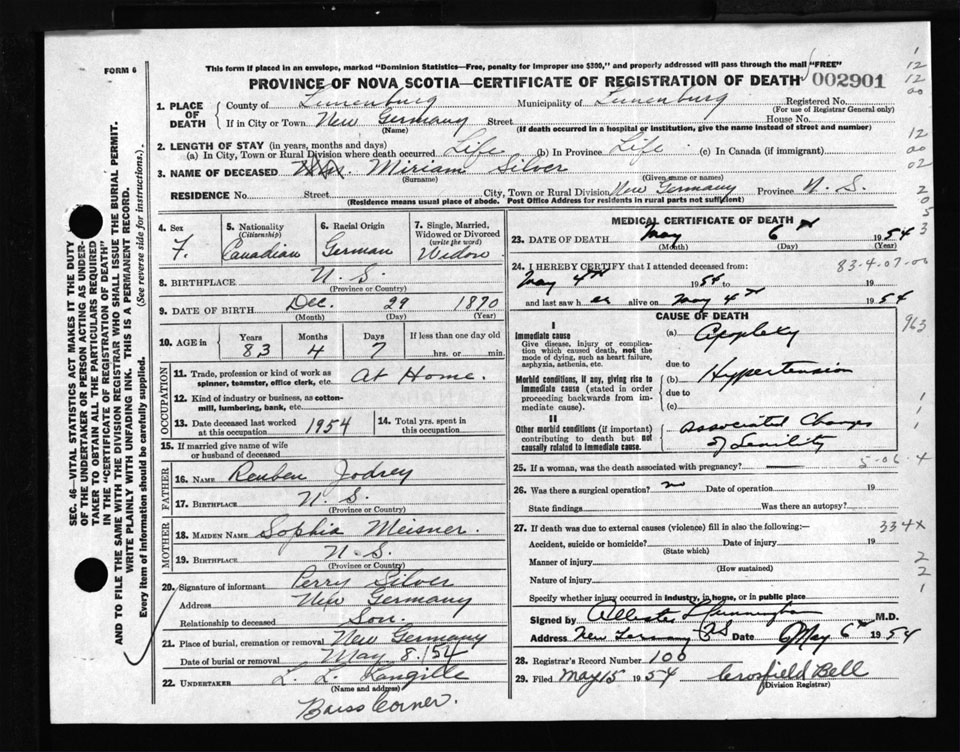 This form if placed in an envelope, marked "Dominion Statistics—Free, penalty for improper use $300," and properly addressed will pass through the mail "FREE"
FORM 6
PROVINCE OF NOVA SCOTIA—CERTIFICATE OF REGISTRATION OF DEATH 002901
1. PLACE OF DEATH
County of Lunenburg Municipality of Lunenburg Registered No.
(For use of Registrar General only)
If in City or Town New Germany Street House No.
(Name) (If death occurred in a hospital or institution, give the name instead of street and number)
2. LENGTH OF STAY (in years, months and days)
(a) In City, Town or Rural Division where death occurred Life (b) In Province Life (c) In Canada (if immigrant)
3. NAME OF DECEASED Miriam Silver
(Surname) (Given name or names)
RESIDENCE No. Street City, Town or Rural Division New Germany Province N. S.
(Residence means usual place of abode. Post Office Address for residents in rural parts not sufficient)
4. Sex
F.
5. Nationality
(Citizenship)
Canadian
6. Racial Origin
German
7. Single, Married, Widowed or Divorced
(write the word)
Widow
8. BIRTHPLACE N. S.
(Province or Country)
9. DATE OF BIRTH Dec. 29 1870
(Month) (Day) (Year)
10. AGE
Years Months Days If less than one day old
83 4 7 hrs. or min.
OCCUPATION
11. Trade, profession or kind of work as
spinner, teamster, office clerk, etc. At Home.
12. Kind of industry or business, as cotton-
mill, lumbering, bank, etc.
13. Date deceased last worked
at this occupation 1954
14. Total yrs. spent in
this occupation
15. If married give name of wife
or husband of deceased
FATHER
16. NAME Reuben Jodrey
17. BIRTHPLACE N. S.
(Province or Country)
MOTHER
18. MAIDEN NAME Sophia Meisner.
19. BIRTHPLACE N. S.
(Province or Country)
20. Signature of informant Perry Silver
Address New Germany
Relationship to deceased Son.
21. Place of burial, cremation or removal New Germany
Date of burial or removal May 8. /54
22. UNDERTAKER L. L. Langille
(Name and address)
Barss Corner.
MEDICAL CERTIFICATE OF DEATH
23. DATE OF DEATH May 6th 1954
(Month) (Day) (Year)
24. I HEREBY CERTIFY that I attended deceased from: 83-4-07-00
May 4th 1954 to 19
and last saw her alive on May 4th 1954
CAUSE OF DEATH
963
I
Immediate cause
Give disease, injury or complica-
tion which caused death, not the
mode of dying, such as heart failure,
asphyxia, asthenia, etc.
(a) Apoplexy
due to
Morbid conditions, if any, giving rise to
immediate cause (stated in order
proceeding backwards from im-
mediate cause).
(b) Hypertension
due to
(c)
II
Other morbid conditions (if important)
contributing to death but not
causally related to immediate cause.
Associated Changes
of Senility
25. If a woman, was the death associated with pregnancy? — 5-06-4
26. Was there a surgical operation? no Date of operation 19
State findings Was there an autopsy?
27. If death was due to external causes (violence) fill in also the following:— 334X
Accident, suicide or homicide? Date of injury 19
(State which)
Manner of injury
(How sustained)
Nature of injury
Specify whether injury occurred in industry, in home, or in public place
Signed by M.D.
Address New Germany NS Date May 6th 1954
28. Registrar's Record Number 100
29. Filed May 15 1954 Crosfield Bell
(Division Registrar)
SEC. 46—VITAL STATISTICS ACT MAKES IT THE DUTY
OF THE UNDERTAKER OR PERSON ACTING AS UNDER-
TAKER TO OBTAIN ALL THE PARTICULARS REQUIRED
IN THE "CERTIFICATE OF REGISTRATION OF DEATH"
AND TO FILE THE SAME WITH THE DIVISION REGISTRAR WHO SHALL ISSUE THE BURIAL PERMIT.
WRITE PLAINLY WITH UNFADING INK. THIS IS A PERMANENT RECORD.
Every item of Information should be carefully supplied. (See reverse side for instructions.)
12
12
00
12
00
02
2
0
5
3
1
1
1
2
2
1